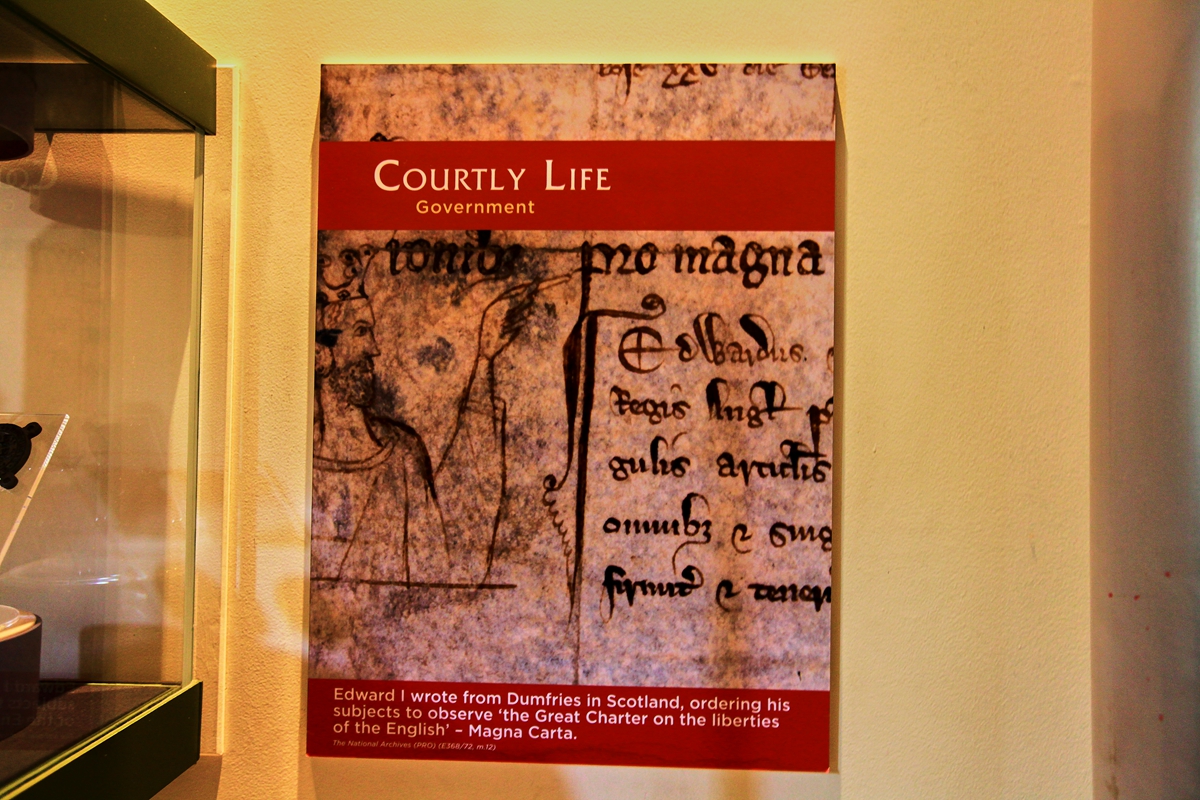 COURTLY LIFE
Government
pro magna
Edwardus.
Regis Angl
gulis articlis
omnibz & sing
firmit & teneri
Edward I wrote from Dumfries in Scotland, ordering his
subjects to observe ‘the Great Charter on the liberties
of the English’ – Magna Carta.
The National Archives (PRO) (E368/72, m.12)